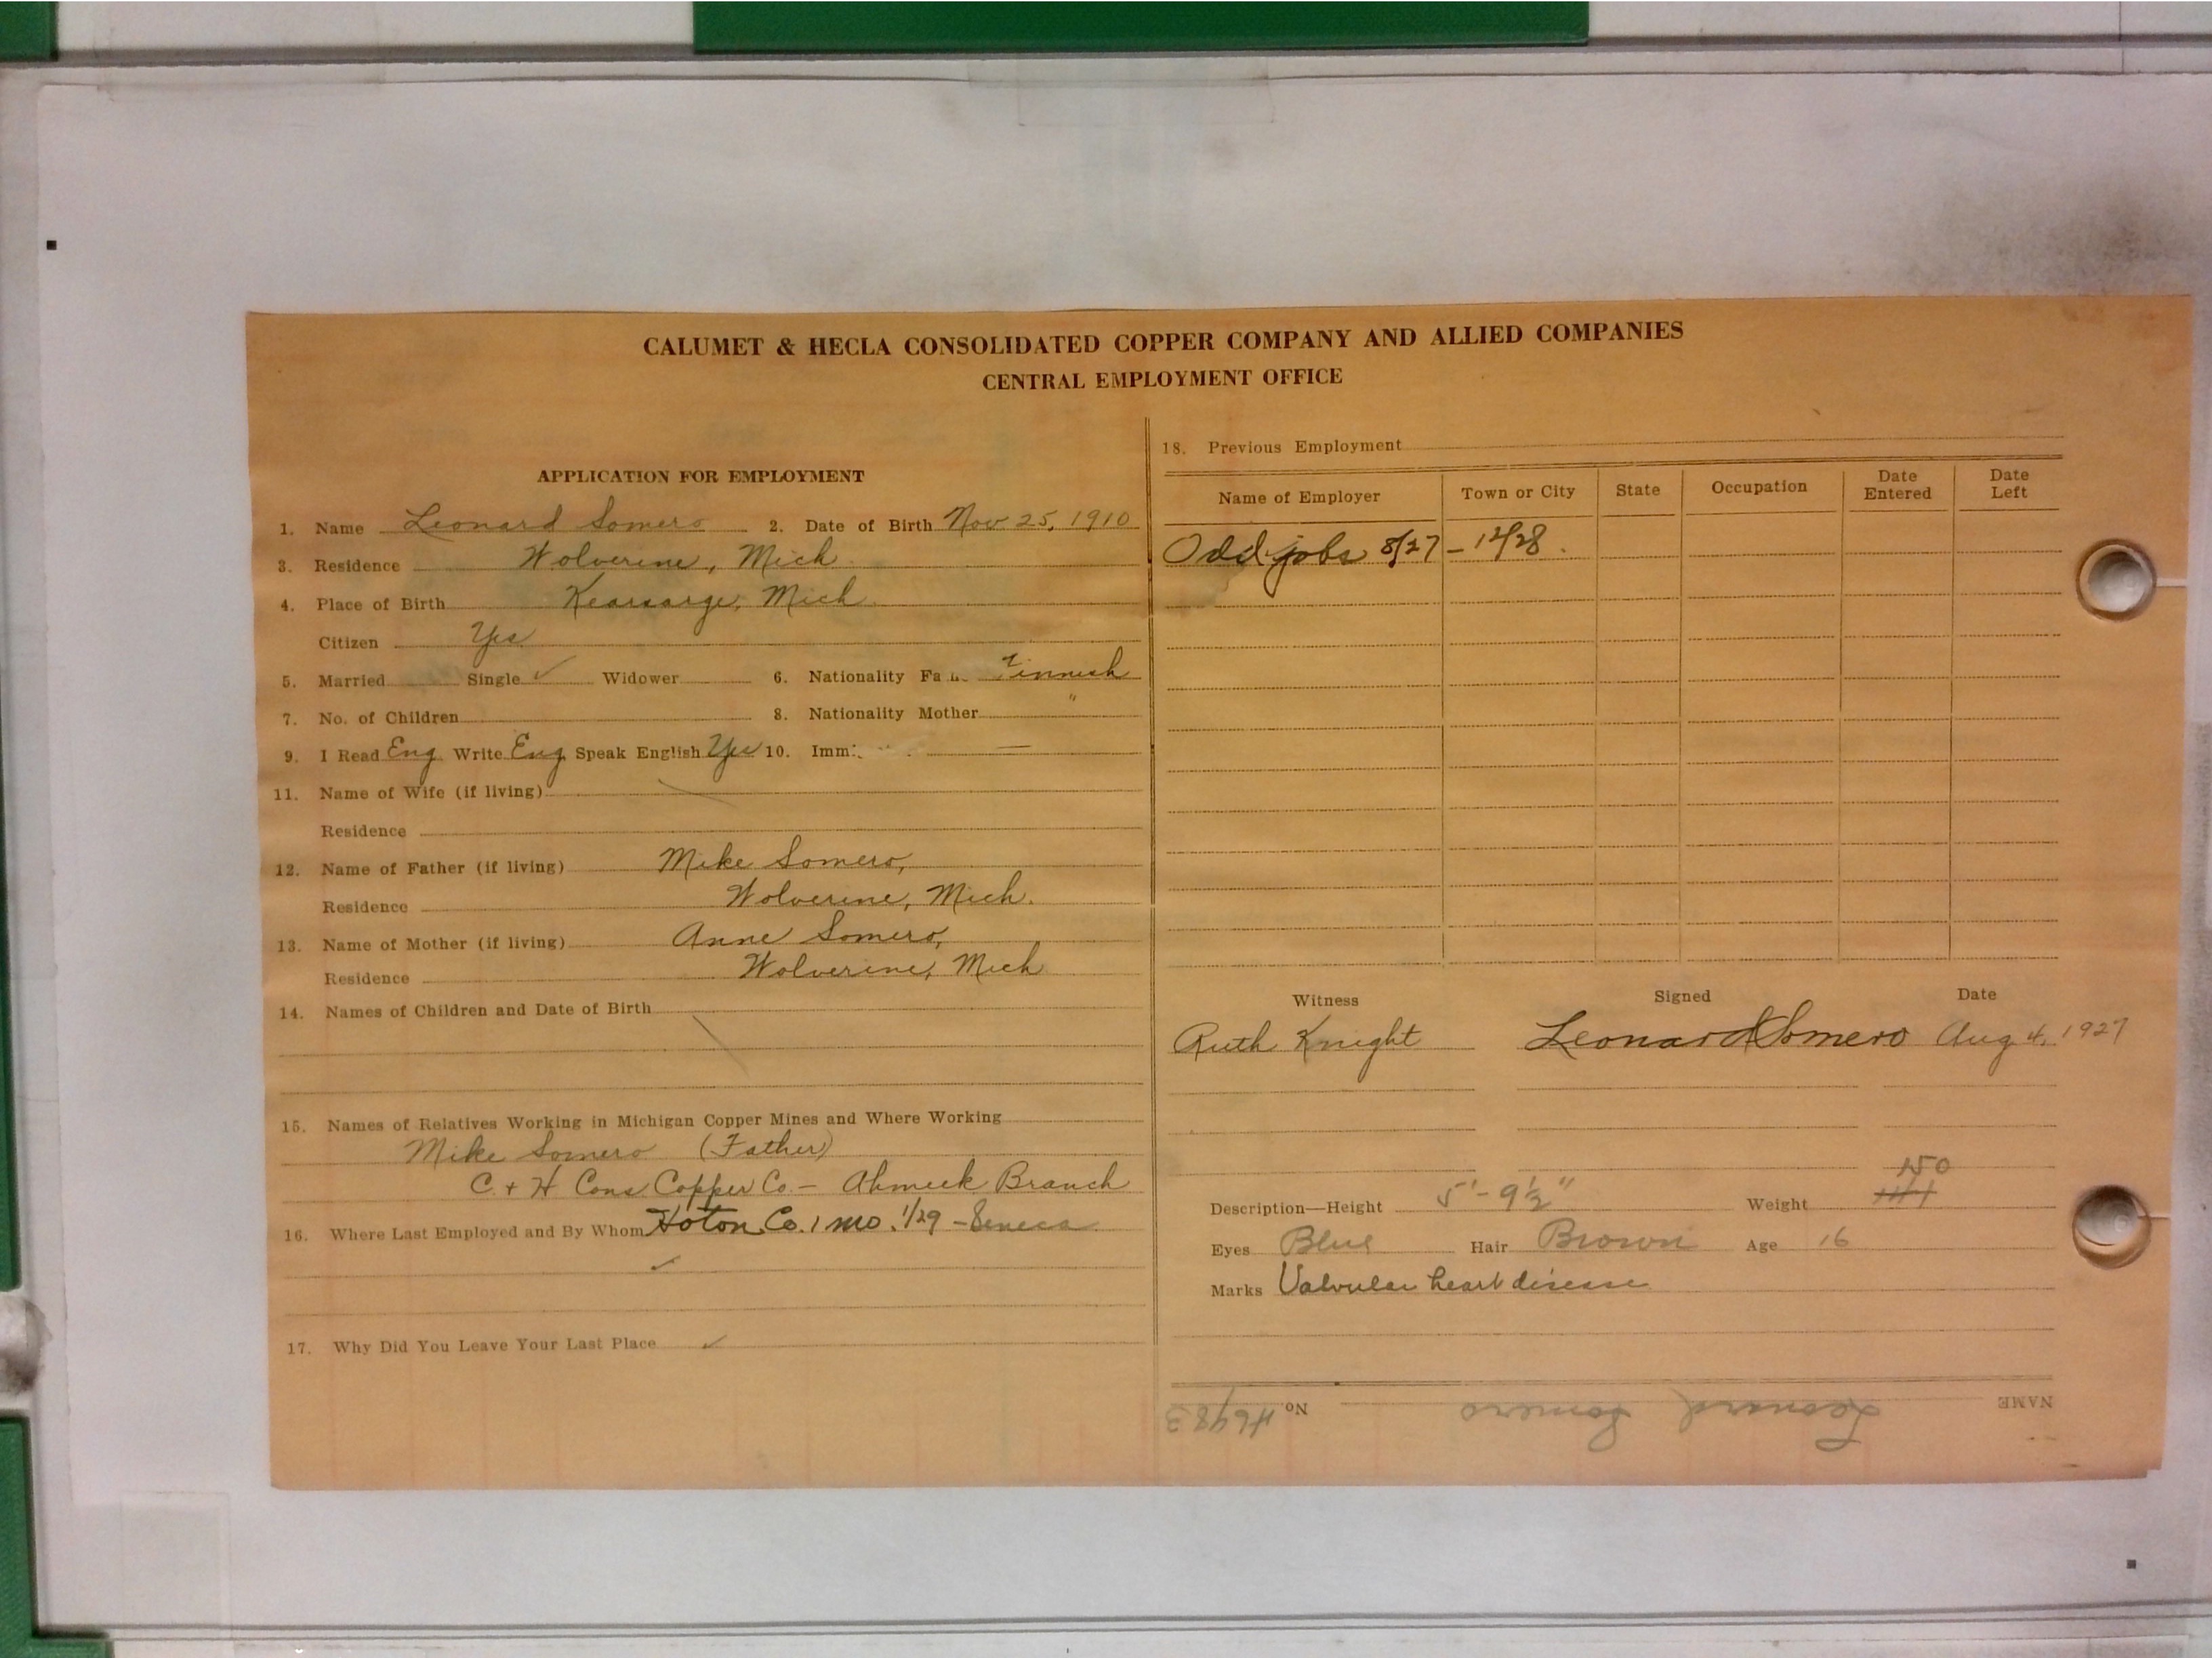 CALUMET & HECLA CONSOLIDATED COPPER COMPANY AND ALLIED COMPANIES
CENTRAL EMPLOYMENT OFFICE
APPLICATION FOR EMPLOYMENT
1. Name Leonard Somero 2. Date of Birth Nov 25, 1910
3. Residence Wolverine, Mich
4. Place of Birth Kearsarge, Mich
Citizen Yes
5. Married Single ✓ Widower 6. Nationality Fa Finnish
7. No. of Children 8. Nationality Mother "
9. I Read Eng. Write Eng. Speak English Yes 10. Imm —
11. Name of Wife (if living)
Residence
12. Name of Father (if living) Mike Somero,
Residence Wolverine, Mich.
13. Name of Mother (if living) Anne Somero,
Residence Wolverine, Mich
14. Names of Children and Date of Birth
15. Names of Relatives Working in Michigan Copper Mines and Where Working
Mike Somero (Father)
C. + H Cons Copper Co. — Ahmeek Branch
16. Where Last Employed and By Whom Hoton Co. 1 mo. 1/29 - Seneca
✓
17. Why Did You Leave Your Last Place ✓
18. Previous Employment
Name of Employer Town or City State Occupation Date Entered Date Left
Odd jobs 8/27 - 12/28.
Witness Signed Date
Ruth Knight Leonard Somero Aug 4, 1927
150
Description—Height 5'- 9½" Weight
Eyes Blue Hair Brown Age 16
Marks Valvular heart disease
NAME Leonard Somero No. 46483